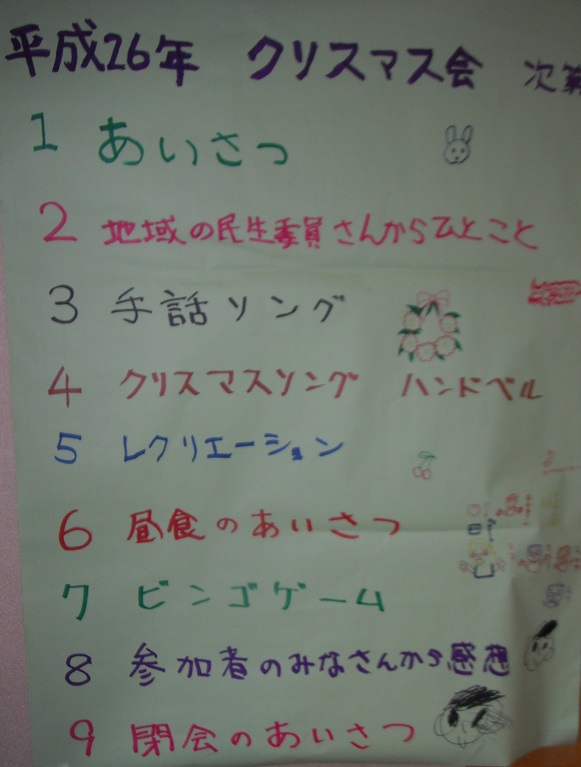 平成26年 クリスマス会 次第
1 あいさつ
2 地域の民生委員さんからひとこと
3 手話ソング
4 クリスマスソング ハンドベル
5 レクリエーション
6 昼食のあいさつ
7 ビンゴゲーム
8 参加者のみなさんから感想
9 閉会のあいさつ